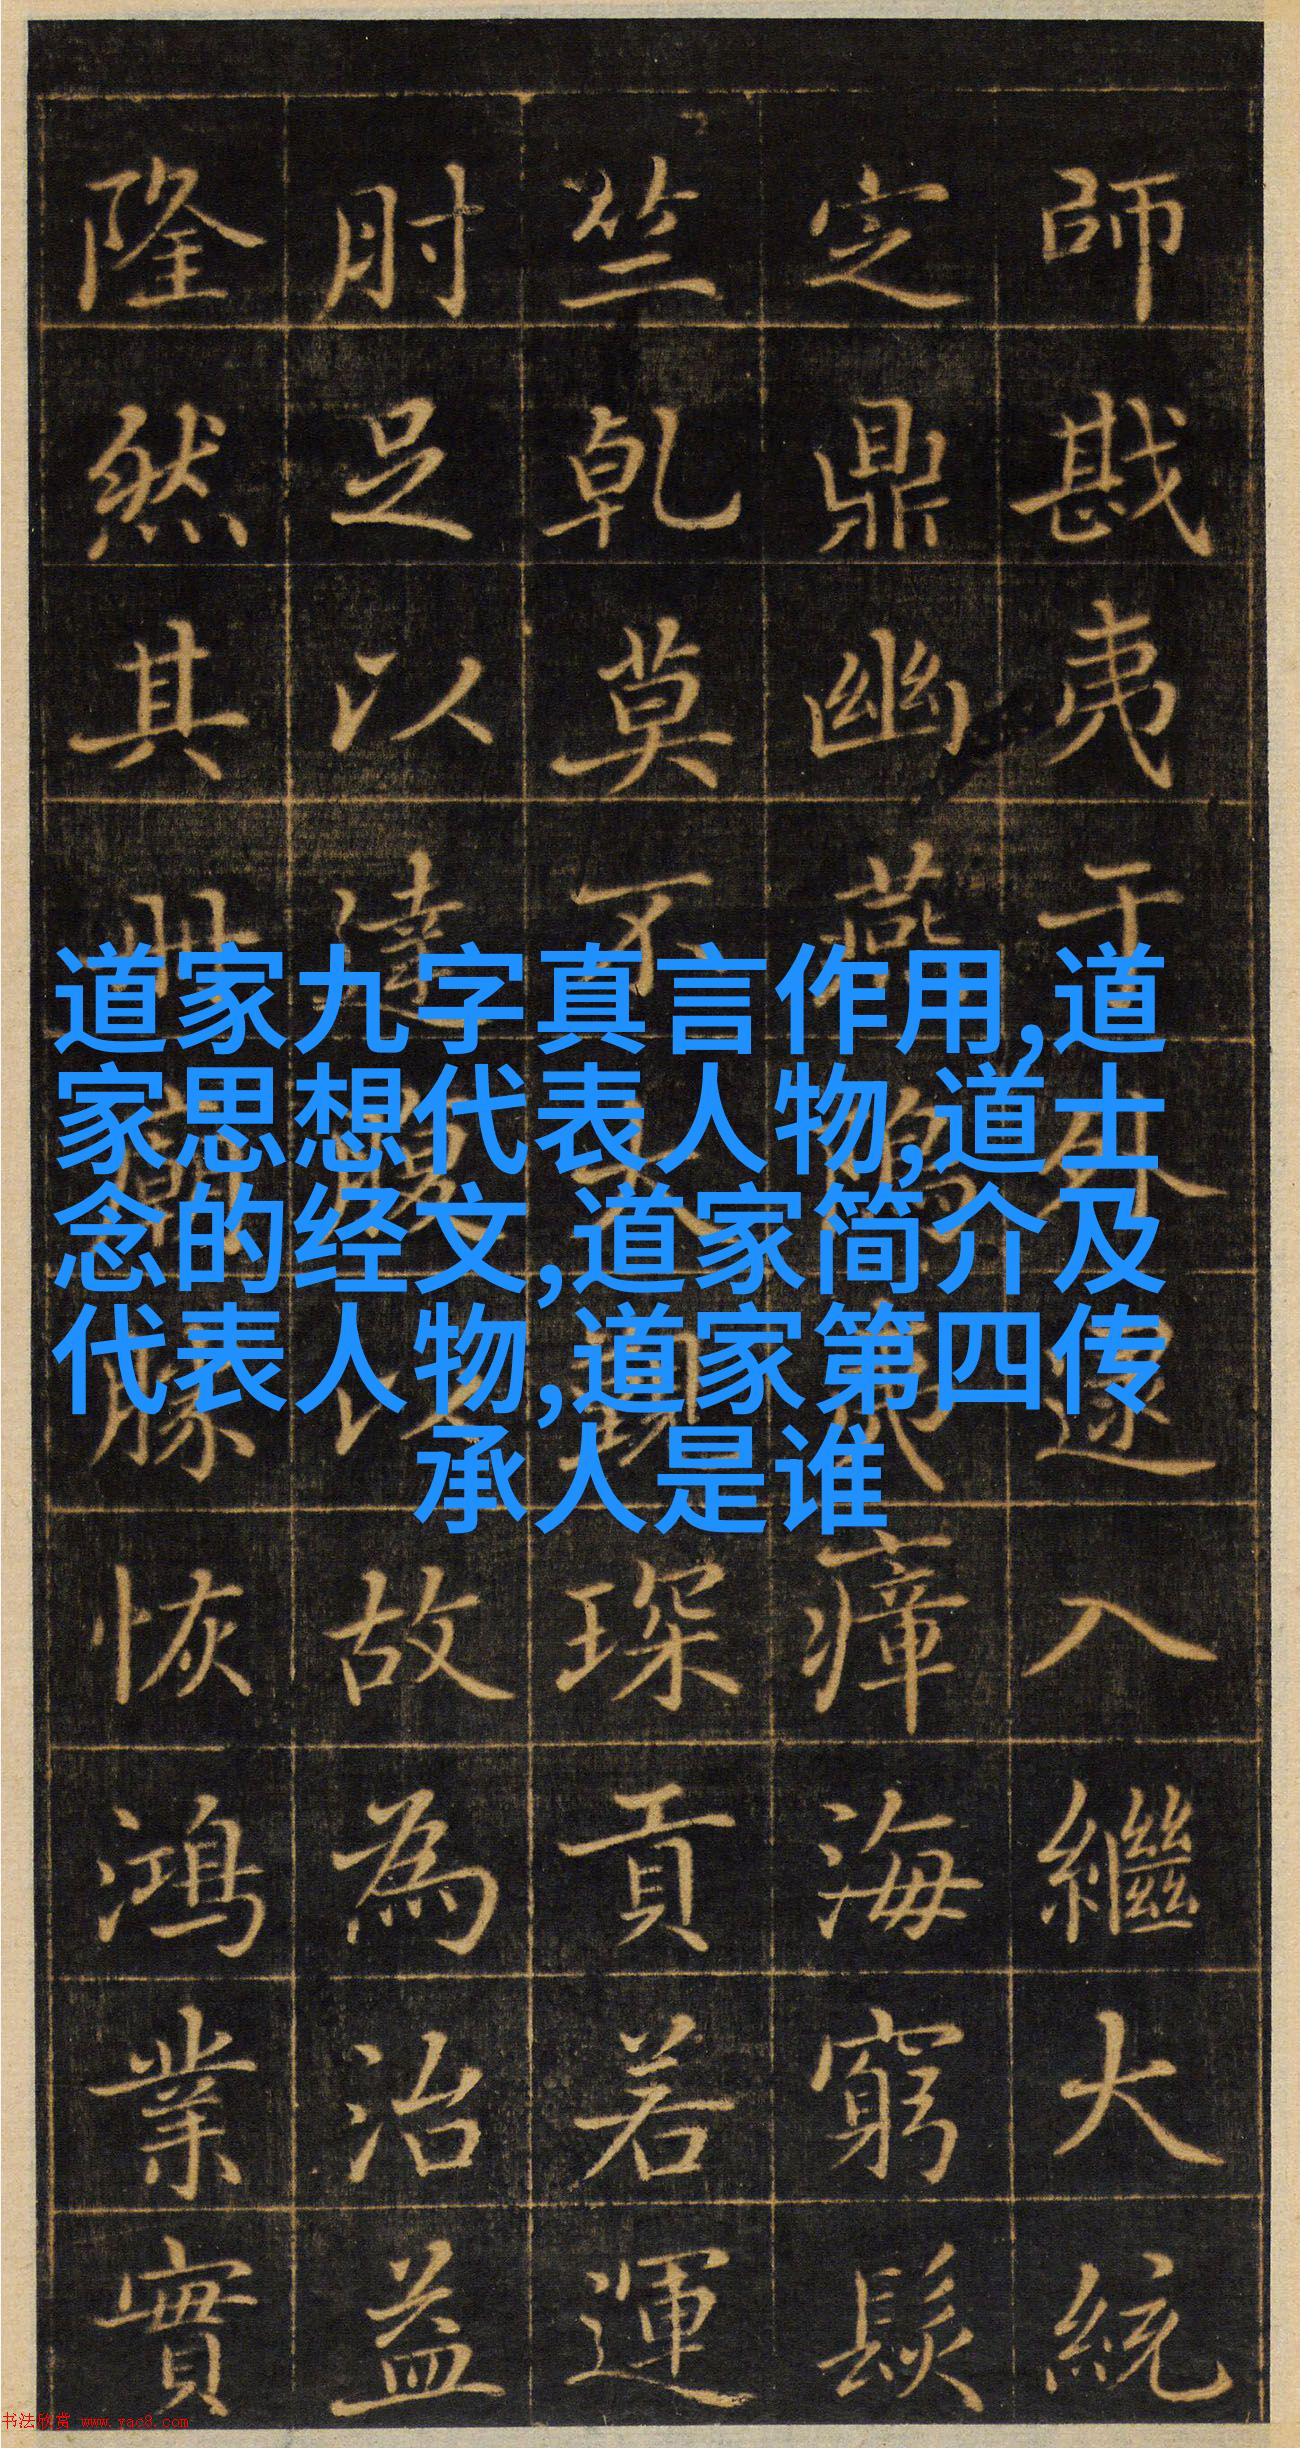 師戡夷于外遂入繼大統
定鼎幽燕瘴海窮髮
竺乾莫不琛貢若運
肘足以達以故為治益
隆然其恢鴻業實
道家九字真言作用,道
家思想代表人物,道士
念的经文,道家简介及
代表人物,道家第四传
承人是谁
书法欣赏 www.yac8.com